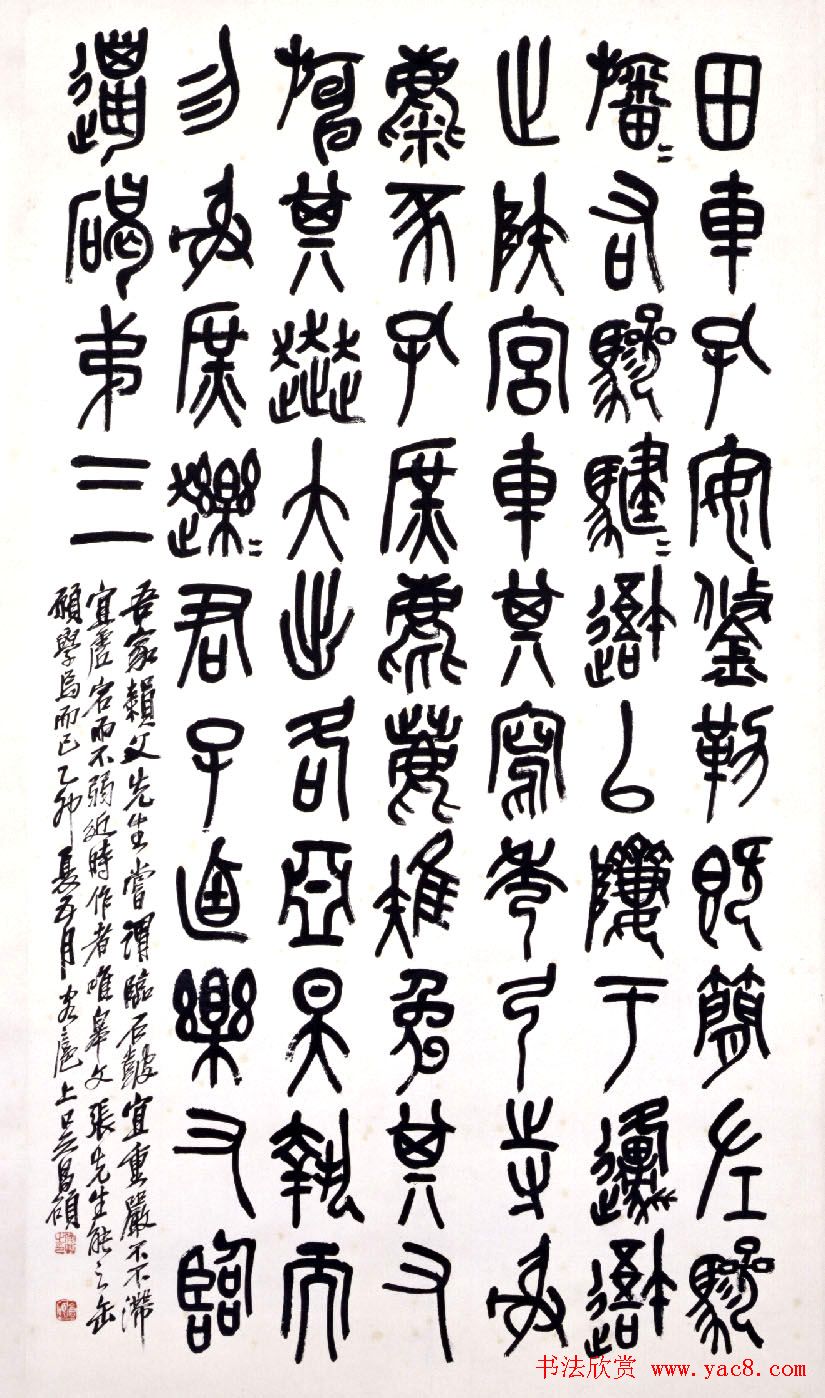 田車孔安鋚勒既簡左驂
旛=右驂騝=䢒以隮于邍䢒
止陕宮車其寫秀弓寺射
麋豕孔庶麀鹿雉兔其又
旃其奔大出各亞昊執而
勿射庶趮=君子逌樂又臨
邋碣弟三
吾家賴文先生嘗謂臨石鼓宜重嚴而不滯
宜虛宕而不弱近時作者唯皋文張先生能之缶
願學焉而已乙卯夏五月客滬上吳昌碩
书法欣赏 www.yac8.com